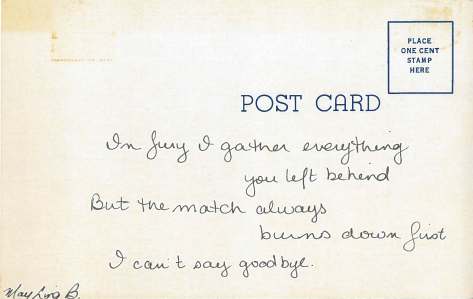 PLACE
ONE CENT
STAMP
HERE
POST CARD
In fury I gather everything
you left behind
But the match always
burns down first
I can't say goodbye.
B.